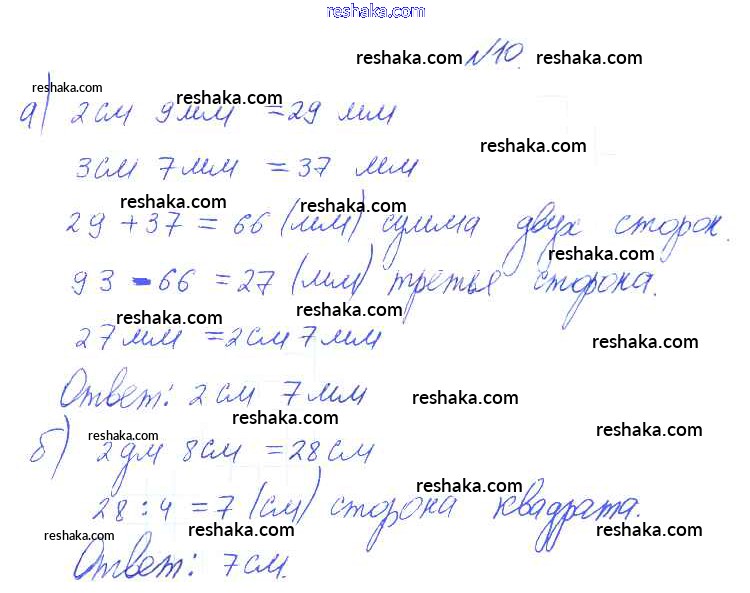 reshaka.com
reshaka.com №10. reshaka.com
reshaka.com reshaka.com
а) 2см 9мм = 29 мм
reshaka.com
3см 7мм = 37 мм
reshaka.com reshaka.com
29 + 37 = 66 (мм) сумма двух сторон.
reshaka.com
93 - 66 = 27 (мм) третья сторона.
reshaka.com reshaka.com
27мм = 2см 7мм
reshaka.com
Ответ: 2см 7мм
reshaka.com
reshaka.com reshaka.com reshaka.com
б) 2дм 8см = 28см
reshaka.com
28 : 4 = 7 (см) сторона квадрата.
reshaka.com reshaka.com reshaka.com
Ответ: 7см.